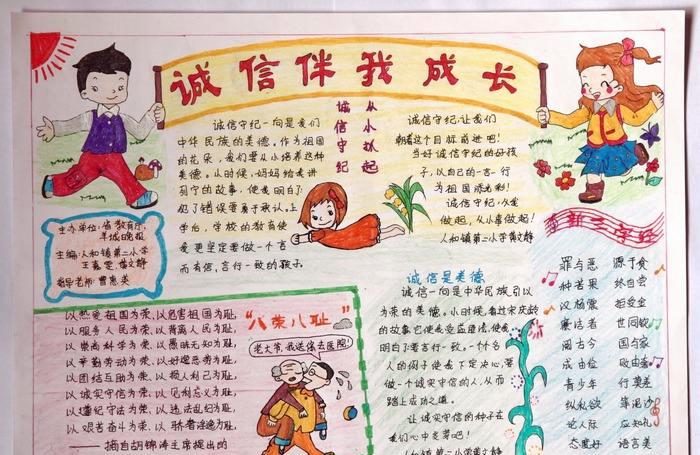 诚信伴我成长
诚信守纪一向是我们
中华民族的美德。作为祖国
的花朵，我们要从小培养这种
美德。小时候，妈妈给我讲
列宁的故事，使我明白了
犯了错误要勇于承认。上
学后，学校的教育使
我更坚定要做一个言
而有信，言行一致的孩子。
诚信守纪
从小抓起
诚信守纪，让我们
朝着这个目标前进吧！
当好诚信守纪的好孩
子，以自己的一言一行
为祖国添光彩！
诚信守纪，从我
做起，从小事做起！
人和镇第二小学黄文静
主办单位：省教育厅、
羊城晚报
主编：人和镇第二小学
指导老师：曹惠英
以热爱祖国为荣、以危害祖国为耻，
以服务人民为荣、以背离人民为耻，
以崇尚科学为荣、以愚昧无知为耻，
以辛勤劳动为荣、以好逸恶劳为耻，
以团结互助为荣、以损人利己为耻，
以诚实守信为荣、以见利忘义为耻，
以遵纪守法为荣、以违法乱纪为耻，
以艰苦奋斗为荣、以骄奢淫逸为耻。
——摘自胡锦涛主席提出的
“八荣八耻”
老大爷，我送您去医院！
诚信是美德
诚信一向是中华民族引以
为荣的美德。小时候，看过宋庆龄
的故事，它使我受益匪浅，使我
明白了：要言行一致。一个个名
人的例子使我下定决心，要
做一个诚实守信的人，从而
踏上成功之道。
让诚实守信的种子在
我们心中发芽吧！
人和镇第二小学黄文静
新三字经
罪与恶 源于贪
种苦果 终自尝
廉洁者 世同钦
阅古今 国与家
成由俭 败由奢
青少年 行莫差
纵私欲
论人际 应知礼
态度好 语言美